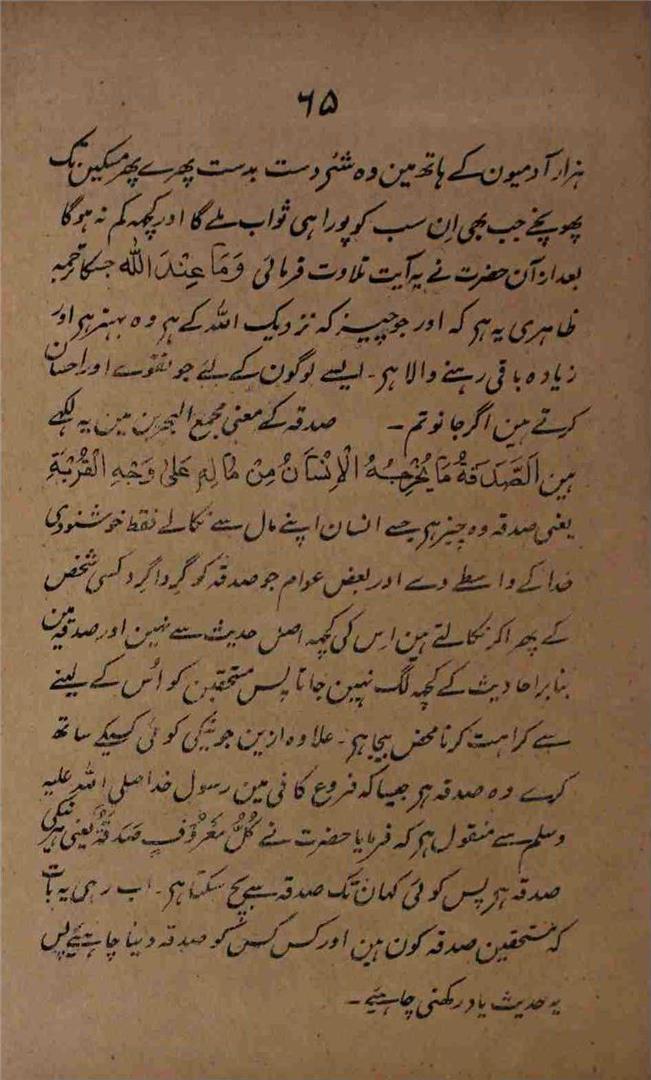 ۶۵
ہزار آدمیون کے ہاتھ مین وہ شئ دست بدست پھرے پھر مسکین تک
پھوپنچے جب بھی اِن سب کو پورا ہی ثواب ملے گا اور کچھ کم نہ ہوگا
بعد ازان حضرت نے یہ آیت تلاوت فرمائی وَمَا عِنْدَ اللّٰه جسکا ترجمہ
ظاہری یہ ہر کہ اور جو چیز کہ نزدیک اللہ کے ہر وہ بہتر ہر اور
زیادہ باقی رہنے والا ہر ۔ ایسے لوگون کے لئے جو تقوے اور احسان
کرتے ہین اگر جانو تم ۔ صدقہ کے معنی مجمع البحرین مین یہ لکھے
ہین اَلصَّدَقَةُ مَا یُخْرِجُهُ الْاِنْسَانُ مِنْ مَالِهٖ عَلٰی وَجْهِ الْقُرْبَةِ
یعنی صدقہ وہ چیز ہر جسے انسان اپنے مال سے نکالے فقط خوشنودی
خدا کے واسطے دے اور بعض عوام جو صدقہ کو گرداگرد کسی شخص
کے پھرا کر نکالتے ہین اس کی کچھ اصل حدیث سے نہین اور صدقہ مین
بنا بر احادیث کے کچھ لگ نہین جاتا پس مستحقین کو اُس کے لینے
سے کراہت کرنا محض بیجا ہر ۔ علاوہ ازین جو نیکی کوئی کسیکے ساتھ
کرے وہ صدقہ ہر جیسا کہ فروع کافی مین رسول خدا صلی اللہ علیہ
وسلم سے منقول ہر کہ فرمایا حضرت نے کُلُّ مَعْرُوْفٍ صَدَقَةٌ یعنی ہر نیکی
صدقہ ہر پس کوئی کہان تک صدقہ سے بچ سکتا ہر ۔ اب رہی یہ بات
کہ مستحقین صدقہ کون ہین اور کس کس کو صدقہ دینا چاہیئے پس
یہ حدیث یاد رکھنی چاہیئے ۔